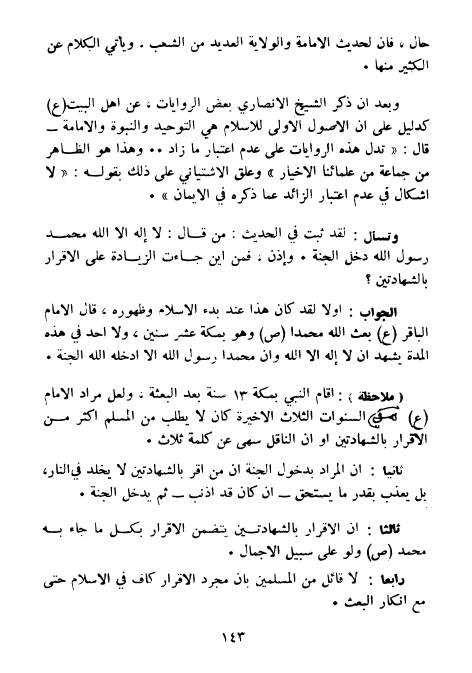 حال ، فان لحديث الامامة والولاية العديد من الشعب . ويأتي الكلام عن
الكثير منها .
وبعد ان ذكر الشيخ الانصاري بعض الروايات ، عن اهل البيت(ع)
كدليل على ان الاصول الاولى للاسلام هي التوحيد والنبوة والامامة ــ
قال : « تدل هذه الروايات على عدم اعتبار ما زاد .. وهذا هو الظاهر
من جماعة من علمائنا الاخيار » وعلق الاشتياني على ذلك بقولـه : « لا
اشكال في عدم اعتبار الزائد عما ذكره في الايمان » .
وتسأل : لقد ثبت في الحديث : من قـال : لا إله الا الله محمـد
رسول الله دخل الجنة . وإذن ، فمن اين جـاءت الزيـادة على الاقرار
بالشهادتين ؟
الجواب : اولا لقد كان هذا عند بدء الاسلام وظهوره ، قال الامام
الباقر (ع) بعث الله محمدا (ص) وهو بمكة عشر سنين ، ولا احد في هذه
المدة يشهد ان لا إله الا الله وان محمدا رسول الله الا ادخله الله الجنة .
( ملاحظة ) : اقام النبي بمكة ١٣ سنة بعد البعثة ، ولعل مراد الامام
(ع) السنوات الثلاث الاخيرة كان لا يطلب من المسلم اكثر مـن
الاقرار بالشهادتين او ان الناقل سهى عن كلمة ثلاث .
ثانيا : ان المراد بدخول الجنة ان من اقر بالشهادتين لا يخلد في النار،
بل يعذب بقدر ما يستحق ــ ان كان قد اذنب ــ ثم يدخل الجنة .
ثالثا : ان الاقرار بالشهادتـين يتضمن الاقرار بكـل ما جاء بـه
محمد (ص) ولو على سبيل الاجمال .
رابعا : لا قائل من المسلمين بان مجرد الاقرار كاف في الاسلام حتى
مع انكار البعث .
١٤٣